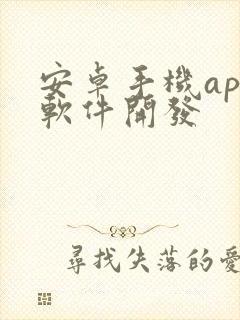 安卓手機ap
軟件開發
尋找失落的愛